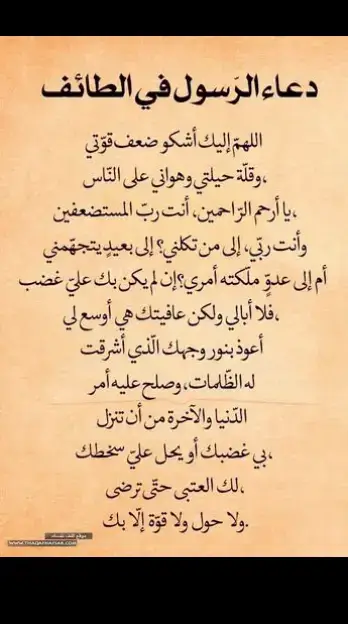 دعاء الرّسول في الطائف
اللهمّ إليك أشكو ضعف قوّتي
،وقلّة حيلتي وهواني على النّاس
،يا أرحم الرّاحمين، أنت ربّ المستضعفين
وأنت ربّي، إلى من تكلني؟ إلى بعيدٍ يتجهّمني
أم إلى عدوٍّ ملّكته أمري؟ إن لم يكن بك عليّ غضب
،فلا أبالي ولكن عافيتك هي أوسع لي
أعوذ بنور وجهك الّذي أشرقت
له الظّلمات، وصلح عليه أمر
الدّنيا والآخرة من أن تنزل
،بي غضبك أو يحل عليّ سخطك
،لك العتبى حتّى ترضى
.ولا حول ولا قوّة إلّا بك